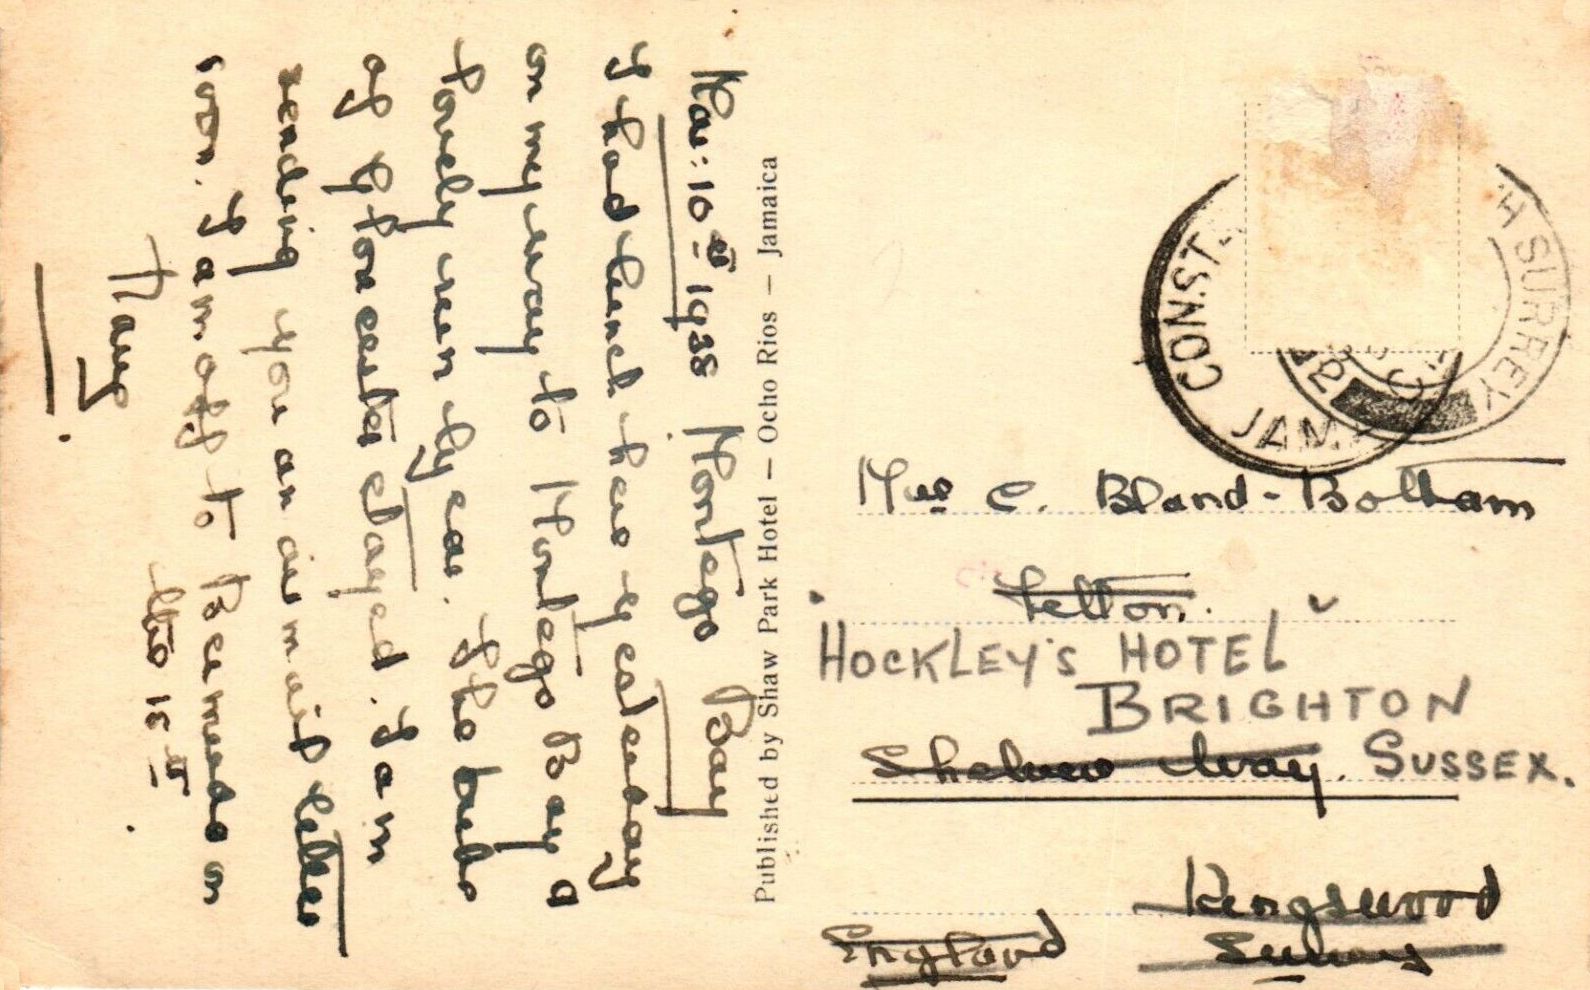 Mar: 10th 1938 Montego Bay
I had lunch here yesterday
on my way to Montego Bay a
lovely run by car. The Duke
of Gloucester stayed. I am
sending you an air mail letter
soon. I am off to Bermuda on
the 15th
Published by Shaw Park Hotel – Ocho Rios – Jamaica
CONST
JAM
H SURREY
Mrs C. Bland-Boltham
Felton.
HOCKLEY'S HOTEL
BRIGHTON
Way. SUSSEX.
Kingswood
England Surrey